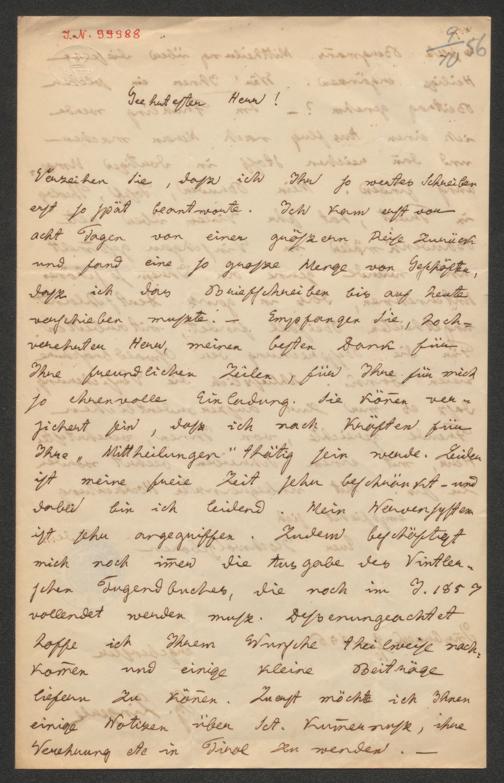 I.N. 99988
9/10 56
Geehrtester Herr!
Verzeihen Sie, daß ich Ihr so wertes Schreiben
erst so spät beantworte. Ich kam erst vor
acht Tagen von einer größern Reise zurück
und fand eine so große Menge von Geschäften,
daß ich das Briefschreiben bis auf heute
verschieben mußte. – Empfangen Sie, hoch=
verehrter Herr, meinen besten Dank für
Ihre freundlichen Zeilen, für Ihre für mich
so ehrenvolle Einladung. Sie können ver=
sichert sein, daß ich nach Kräften für
Ihre „Mittheilungen" thätig sein werde. Leider
ist meine freie Zeit sehr beschränkt – und
dabei bin ich leidend. Mein Nervensystem
ist sehr angegriffen. Zudem beschäftigt
mich noch im̄er die Ausgabe des Vintler=
schen Tugendbuches, die noch im J. 1857
vollendet werden muß. Dessenungeachtet
hoffe ich Ihrem Wunsche theilweise nach=
kom̄en und einige kleine Beiträge
liefern zu kön̄en. Zuerst möchte ich Ihnen
einige Notizen über St. Kum̄ernuß, ihre
Verehrung etc in Tirol zu wenden. –